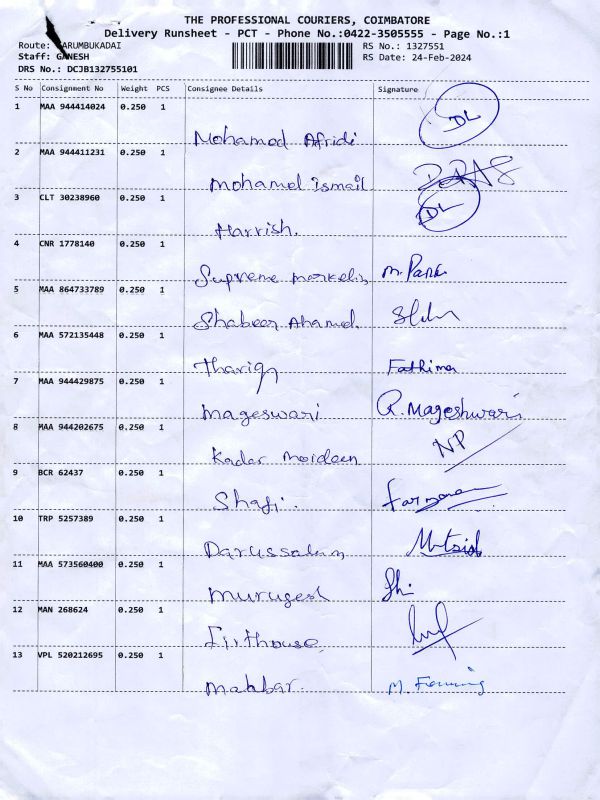 THE PROFESSIONAL COURIERS, COIMBATORE
Delivery Runsheet - PCT - Phone No.:0422-3505555 - Page No.:1
Route: KARUMBUKADAI RS No.: 1327551
Staff: GANESH RS Date: 24-Feb-2024
DRS No.: DCJB132755101
S No Consignment No Weight PCS Consignee Details Signature
1 MAA 944414024 0.250 1
Mohamed Afridi DL
2 MAA 944411231 0.250 1
Mohamed ismail
3 CLT 30238960 0.250 1 DL
Harrish.
4 CNR 1778140 0.250 1
Supreme
5 MAA 864733789 0.250 1
Shabeer Ahamed.
6 MAA 572135448 0.250 1
Thariq Fathima
7 MAA 944429875 0.250 1
Mageswari R. Mageshwari
8 MAA 944202675 0.250 1 NP
Kader moideen
9 BCR 62437 0.250 1
Shafi.
10 TRP 5257389 0.250 1
Darussalam
11 MAA 573560400 0.250 1
Murugesh
12 MAN 268624 0.250 1
Firthouse
13 VPL 520212695 0.250 1
Mahbar.